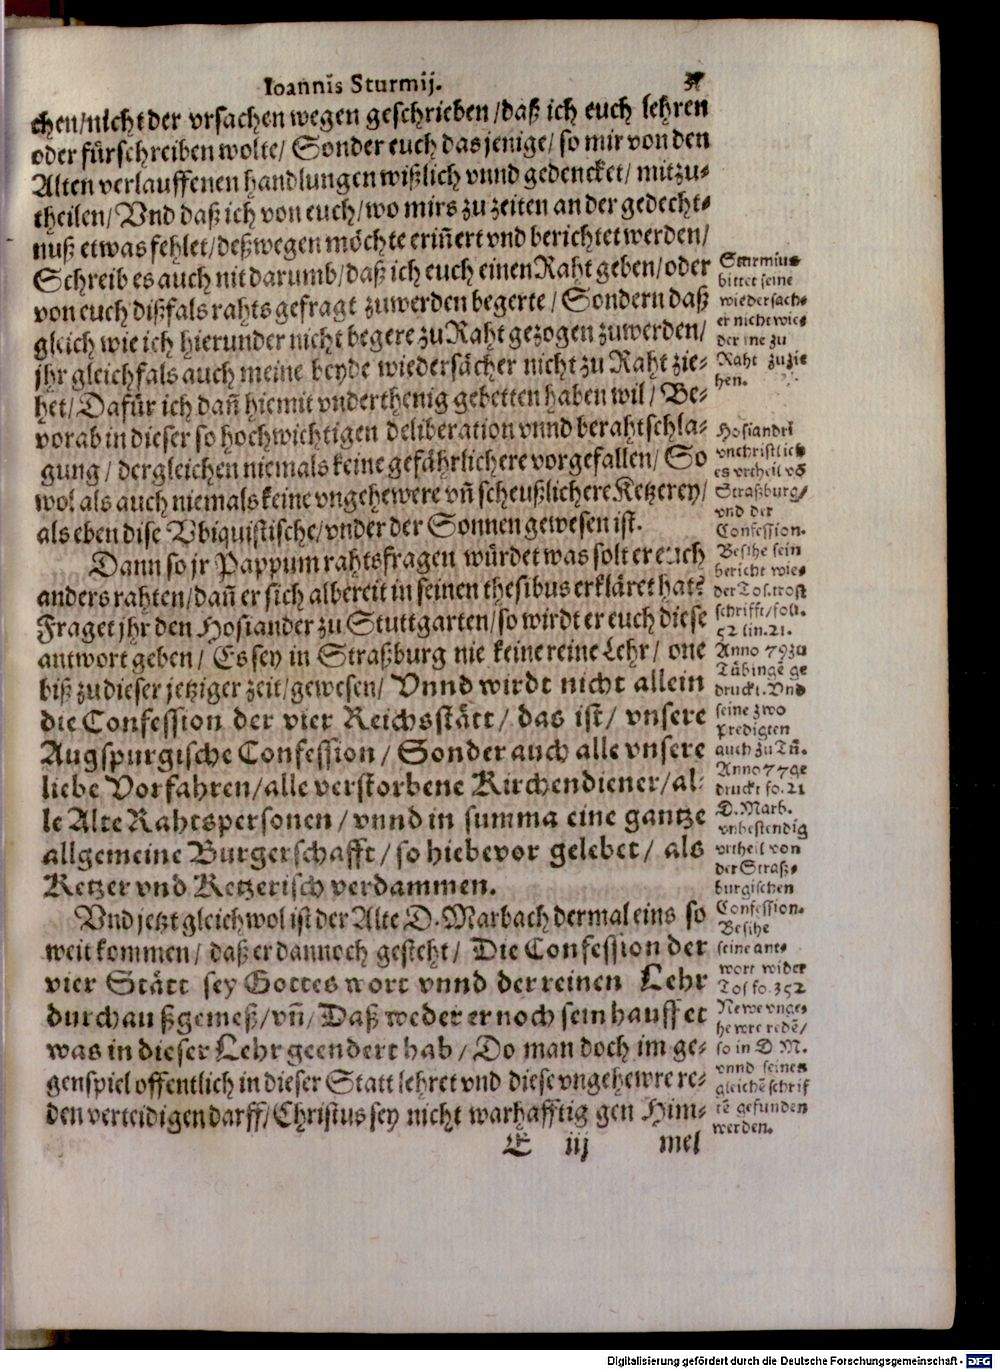 Ioannis Sturmij. 37
chen/nicht der vrsachen wegen geschrieben/daß ich euch lehren
oder fürschreiben wolte/ Sonder euch das jenige/ so mir von den
Alten verlauffenen handlungen wißlich vnnd gedencket/ mitzu-
theilen/ Vnd daß ich von euch/wo mirs zu zeiten an der gedecht-
nuß etwas fehlet/deßwegen möchte erin̄ert vnd berichtet werden/
Schreib es auch nit darumb/daß ich euch einen Raht geben/oder
von euch dißfals rahts gefragt zuwerden begerte/ Sondern daß
gleich wie ich hierunder nicht begere zu Raht gezogen zuwerden/
jhr gleichfals auch meine beyde wiedersächer nicht zu Raht zie-
het/ Dafür ich dan̄ hiemit vnderthenig gebetten haben wil/ Be-
vorab in dieser so hochwichtigen deliberation vnnd berahtschla-
gung/ dergleichen niemals keine gefährlichere vorgefallen/ So
wol als auch niemals keine vngehewere vn̄ scheußlichere Ketzerey/
als eben dise Vbiquistische/vnder der Sonnen gewesen ist.
Dann so jr Pappum rahtsfragen würdet was solt er euch
anders rahten/dan̄ er sich albereit in seinen thesibus erkläret hat?
Fraget jhr den Hosiander zu Stuttgarten/so wirdt er euch diese
antwort geben/ Es sey in Straßburg nie keine reine Lehr/ one
biß zu dieser jetziger zeit/gewesen/ Vnnd wirdt nicht allein
die Confession der vier Reichsstätt/ das ist/ vnsere
Augspurgische Confession/ Sonder auch alle vnsere
liebe Vorfahren/alle verstorbene Kirchendiener/al-
le Alte Rahtspersonen/vnnd in summa eine gantze
allgemeine Burgerschafft/so hiebevor gelebet/ als
Ketzer vnd Ketzerisch verdammen.
Vnd jetzt gleichwol ist der Alte D. Marbach dermaleins so
weit kommen/ daß er dannoch gesteht/ Die Confession der
vier Stätt sey Gottes wort vnnd der reinen Lehr
durchauß gemeß/vn̄/ Daß weder er noch sein hauffet
was in dieser Lehr geendert hab/ Do man doch im ge-
genspiel offentlich in dieser Statt lehret vnd diese vngehewre re-
den verteidigen darff/Christus sey nicht warhafftig gen Him-
E iij mel
Sturmius
bittet seine
wiedersach-
er nicht wie-
der ine zu
Raht zuzie
hen.
Hosiandri
vnchristlich
es vrtheil vō
Straßburg/
vnd der
Confession.
Besihe sein
bericht wie-
der Tos. trost
schrifft/foli.
52 lin. 21.
Anno 79 zu
Tübingē ge
druckt. Vnd
seine zwo
Predigten
auch zu Tü.
Anno 77 ge
druckt fo. 21
D. Marb.
vnbestendig
vrtheil von
der Straß-
burgischen
Confession.
Besihe
seine ant-
wort wider
Tos fo. 352
Newe vnge-
hewre redē/
so in D M.
vnnd seines
gleichē schrif
tē gefunden
werden.
Digitalisierung gefördert durch die Deutsche Forschungsgemeinschaft - DFG